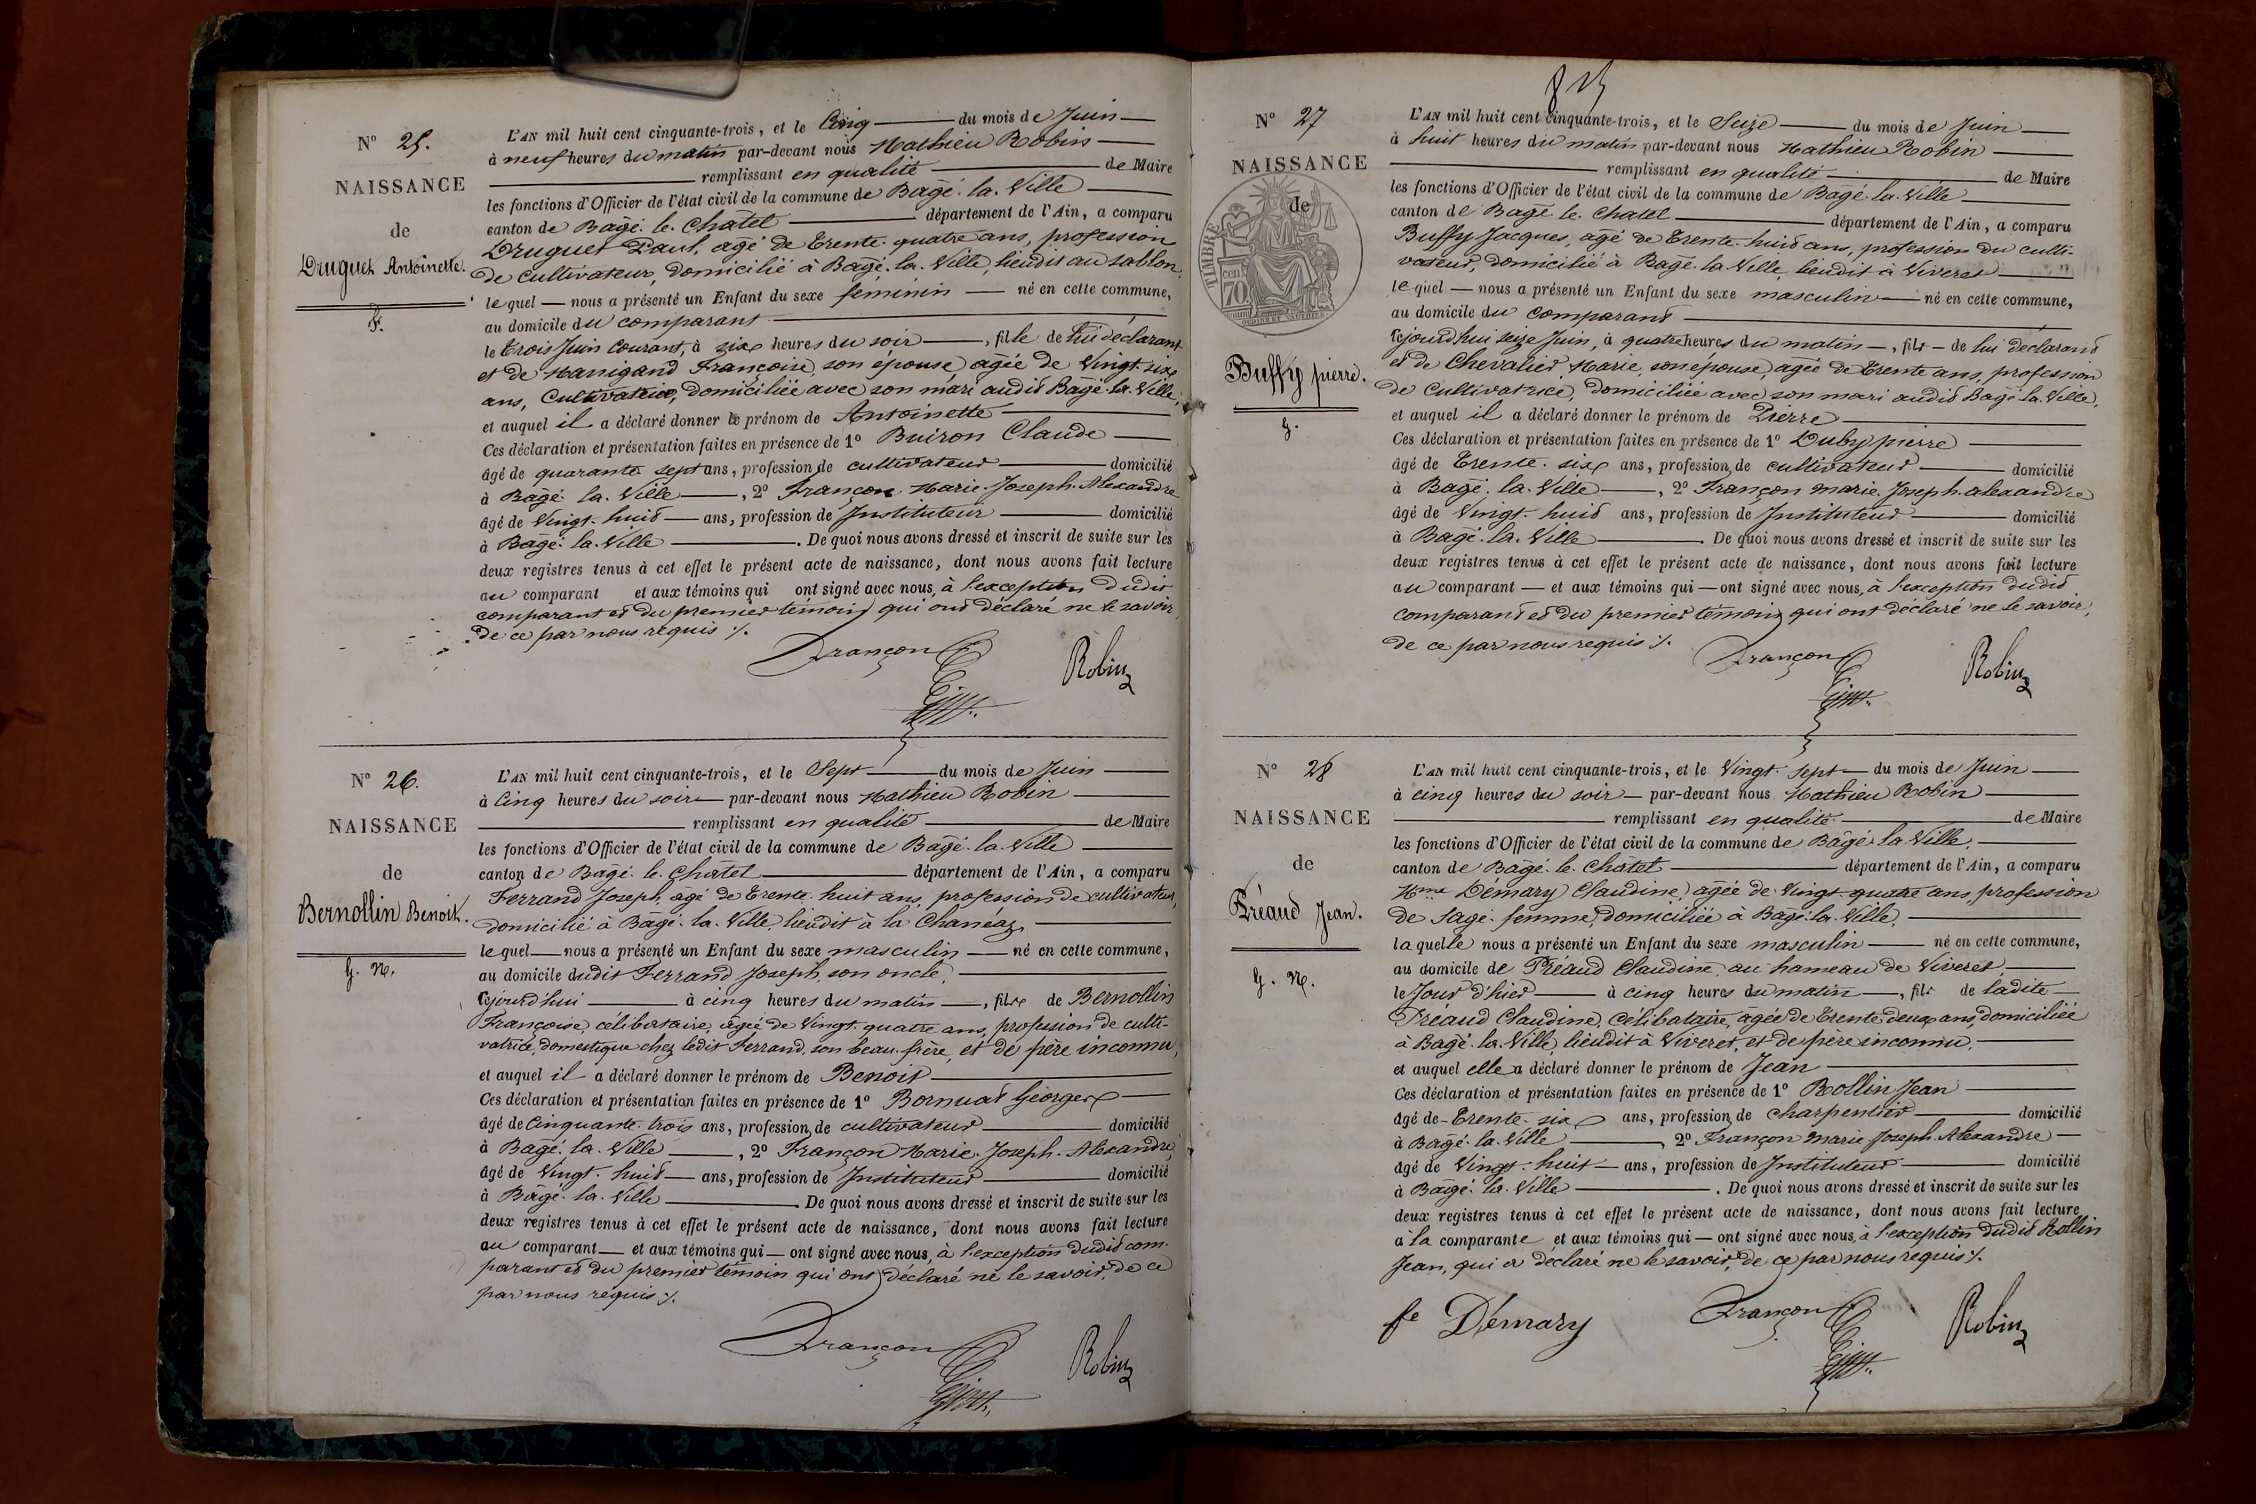 Nº 25.
NAISSANCE
de
Druguet Antoinette.
F.
L'AN mil huit cent cinquante-trois, et le Cinq du mois de Juin
à neuf heures du matin par-devant nous Mathieu Robin
remplissant en qualité de Maire
les fonctions d'Officier de l'état civil de la commune de Bagé-la-Ville
canton de Bagé-le-Châtel département de l'Ain, a comparu
Druguet Paul, agé de trente-quatre ans, profession
de cultivateur, domicilié à Bagé-la-Ville, lieudit au sablon,
lequel nous a présenté un Enfant du sexe feminin né en cette commune,
au domicile du comparant
le trois Juin courant, à six heures du soir, fille de lui déclarant
et de Manigand Françoise, son épouse, agée de Vingt-six
ans, Cultivatrice, domiciliée avec son mari audit Bagé-la-Ville,
et auquel il a déclaré donner le prénom de Antoinette
Ces déclaration et présentation faites en présence de 1º Buiron Claude
âgé de quarante sept ans, profession de cultivateur domicilié
à Bagé-la-Ville, 2º Françon Marie-Joseph-Alexandre
âgé de Vingt-huit ans, profession de Instituteur domicilié
à Bagé-la-Ville. De quoi nous avons dressé et inscrit de suite sur les
deux registres tenus à cet effet le présent acte de naissance, dont nous avons fait lecture
au comparant et aux témoins qui ont signé avec nous, à l'exception dudit
comparant et du premier témoin qui ont déclaré ne le savoir,
de ce par nous requis ./.
Françon
Robin
Nº 26.
NAISSANCE
de
Bernollin Benoit.
G. N.
L'AN mil huit cent cinquante-trois, et le Sept du mois de Juin
à Cinq heures du soir par-devant nous Mathieu Robin
remplissant en qualité de Maire
les fonctions d'Officier de l'état civil de la commune de Bagé-la-Ville
canton de Bagé-le-Châtel département de l'Ain, a comparu
Ferrand Joseph, agé de trente-huit ans, profession de cultivateur,
domicilié à Bagé-la-Ville, lieudit à la Chanéaz
lequel nous a présenté un Enfant du sexe masculin né en cette commune,
au domicile dudit Ferrand Joseph, son oncle,
cejourd'hui à cinq heures du matin, fils de Bernollin
Françoise, célibataire, âgée de Vingt-quatre ans, profession de culti-
vatrice, domestique chez ledit Ferrand, son beau-frère, et de père inconnu,
et auquel il a déclaré donner le prénom de Benoit
Ces déclaration et présentation faites en présence de 1º Bornuat Georges
âgé de Cinquante-trois ans, profession de cultivateur domicilié
à Bagé-la-Ville, 2º Françon Marie-Joseph-Alexandre,
âgé de Vingt-huit ans, profession de Instituteur domicilié
à Bagé-la-Ville. De quoi nous avons dressé et inscrit de suite sur les
deux registres tenus à cet effet le présent acte de naissance, dont nous avons fait lecture
au comparant et aux témoins qui ont signé avec nous, à l'exception dudit com-
parant et du premier témoin qui ont déclaré ne le savoir, de ce
par nous requis ./.
Françon
Robin
Nº 27
NAISSANCE
de
TIMBRE
cent
70
Buffy pierre.
g.
L'AN mil huit cent cinquante-trois, et le Seize du mois de Juin
à huit heures du matin par-devant nous Mathieu Robin
remplissant en qualité de Maire
les fonctions d'Officier de l'état civil de la commune de Bagé-la-Ville
canton de Bagé-le-Chatel département de l'Ain, a comparu
Buffy Jacques, agé de trente-huit ans, profession du culti-
vateur, domicilié à Bagé-la-Ville, lieudit à Viveret
lequel nous a présenté un Enfant du sexe masculin né en cette commune,
au domicile du comparant
cejourd'hui seize Juin, à quatre heures du matin, fils de lui déclarant
et de Chevalier Marie, son épouse, agée de trente ans, profession
de cultivatrice, domiciliée avec son mari audit Bagé-la-Ville,
et auquel il a déclaré donner le prénom de Pierre
Ces déclaration et présentation faites en présence de 1º Duby pierre
âgé de trente-six ans, profession de cultivateur domicilié
à Bagé-la-Ville, 2º Françon marie-Joseph-alexandre
âgé de Vingt-huit ans, profession de Instituteur domicilié
à Bagé-la-Ville. De quoi nous avons dressé et inscrit de suite sur les
deux registres tenus à cet effet le présent acte de naissance, dont nous avons fait lecture
au comparant et aux témoins qui ont signé avec nous, à l'exception dudit
comparant et du premier témoin qui ont déclaré ne le savoir,
de ce par nous requis ./.
Françon
Robin
Nº 28
NAISSANCE
de
Préaud Jean.
G. N.
L'AN mil huit cent cinquante-trois, et le Vingt-Sept du mois de Juin
à cinq heures du soir par-devant nous Mathieu Robin
remplissant en qualité de Maire
les fonctions d'Officier de l'état civil de la commune de Bagé-la-Ville,
canton de Bagé-le-Châtel département de l'Ain, a comparu
Mme Démary Claudine, agée de Vingt-quatre ans, profession
de Sage-femme, domiciliée à Bagé-la-Ville,
laquelle nous a présenté un Enfant du sexe masculin né en cette commune,
au domicile de Préaud Claudine, au hameau de Viveret,
le Jour d'hier à cinq heures du matin, fils de ladite
Préaud Claudine, Célibataire, agée de trente-deux ans, domiciliée
à Bagé-la-Ville, lieudit à Viveret, et de père inconnu,
et auquel elle a déclaré donner le prénom de Jean
Ces déclaration et présentation faites en présence de 1º Rollin Jean
âgé de trente-six ans, profession de charpentier domicilié
à Bagé-la-Ville, 2º Françon marie Joseph-Alexandre
âgé de Vingt-huit ans, profession de Instituteur domicilié
à Bagé-la-Ville. De quoi nous avons dressé et inscrit de suite sur les
deux registres tenus à cet effet le présent acte de naissance, dont nous avons fait lecture
a la comparante et aux témoins qui ont signé avec nous, à l'exception dudit Rollin
Jean, qui a déclaré ne le savoir, de ce par nous requis ./.
fe Démary
Françon
Robin